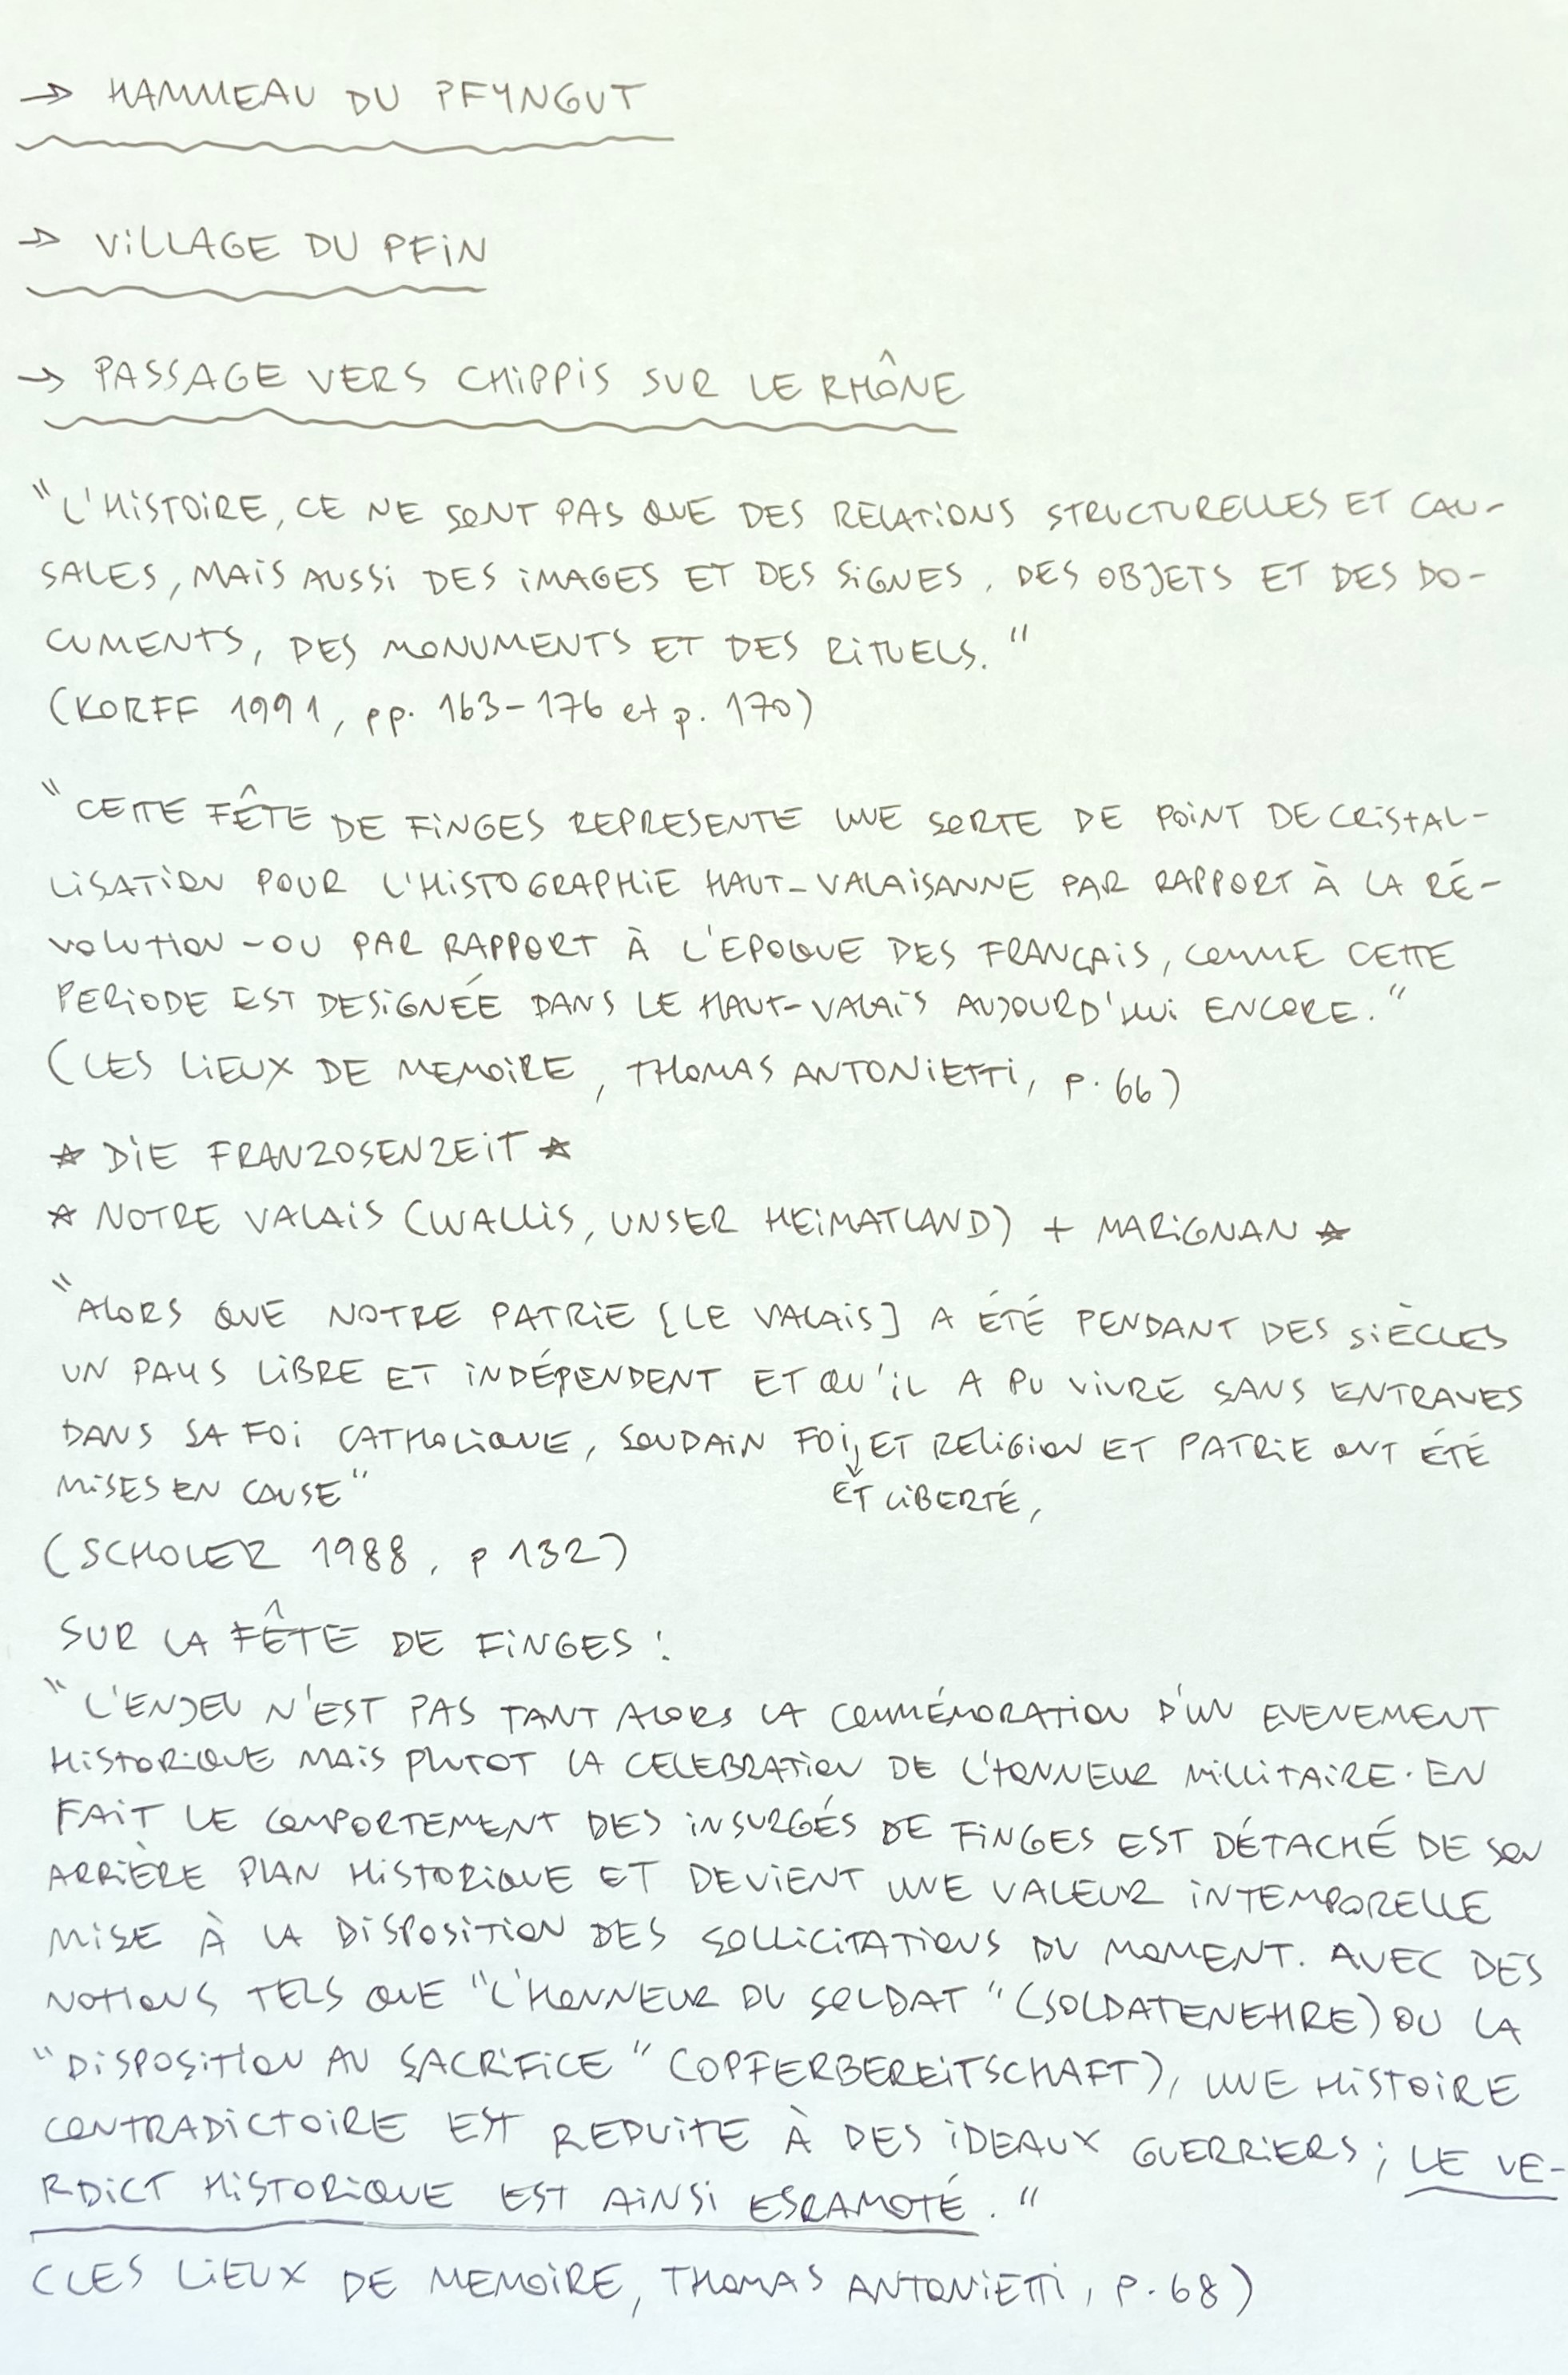 → HAMMEAU DU PFYNGUT
→ VILLAGE DU PFIN
→ PASSAGE VERS CHIPPIS SUR LE RHÔNE
"L'HISTOIRE, CE NE SONT PAS QUE DES RELATIONS STRUCTURELLES ET CAU-
SALES, MAIS AUSSI DES IMAGES ET DES SIGNES, DES OBJETS ET DES DO-
CUMENTS, DES MONUMENTS ET DES RITUELS."
(KORFF 1991, pp. 163-176 et p. 170)
"CETTE FÊTE DE FINGES REPRESENTE UNE SORTE DE POINT DE CRISTAL-
LISATION POUR L'HISTOGRAPHIE HAUT-VALAISANNE PAR RAPPORT À LA RÉ-
VOLUTION - OU PAR RAPPORT À L'EPOQUE DES FRANÇAIS, COMME CETTE
PERIODE EST DESIGNÉE DANS LE HAUT-VALAIS AUJOURD'HUI ENCORE."
(LES LIEUX DE MEMOIRE, THOMAS ANTONIETTI, p. 66)
☆ DIE FRANZOSENZEIT ☆
☆ NOTRE VALAIS (WALLIS, UNSER HEIMATLAND) + MARIGNAN ☆
"ALORS QUE NOTRE PATRIE [LE VALAIS] A ÉTÉ PENDANT DES SIÈCLES
UN PAYS LIBRE ET INDÉPENDENT ET QU'IL A PU VIVRE SANS ENTRAVES
DANS SA FOI CATHOLIQUE, SOUDAIN FOI, ET RELIGION ET PATRIE ONT ÉTÉ
MISES EN CAUSE"
ET LIBERTÉ,
(SCHOLER 1988, p 132)
SUR LA FÊTE DE FINGES :
"L'ENJEU N'EST PAS TANT ALORS LA COMMÉMORATION D'UN EVENEMENT
HISTORIQUE MAIS PLUTOT LA CELEBRATION DE L'HONNEUR MILLITAIRE. EN
FAIT LE COMPORTEMENT DES INSURGÉS DE FINGES EST DÉTACHÉ DE SON
ARRIÈRE PLAN HISTORIQUE ET DEVIENT UNE VALEUR INTEMPORELLE
MISE À LA DISPOSITION DES SOLLICITATIONS DU MOMENT. AVEC DES
NOTIONS TELS QUE "L'HONNEUR DU SOLDAT" (SOLDATENEHRE) OU LA
"DISPOSITION AU SACRIFICE" (OPFERBEREITSCHAFT), UNE HISTOIRE
CONTRADICTOIRE EST REDUITE À DES IDEAUX GUERRIERS ; LE VE-
RDICT HISTORIQUE EST AINSI ESCAMOTÉ."
(LES LIEUX DE MEMOIRE, THOMAS ANTONIETTI, P. 68)